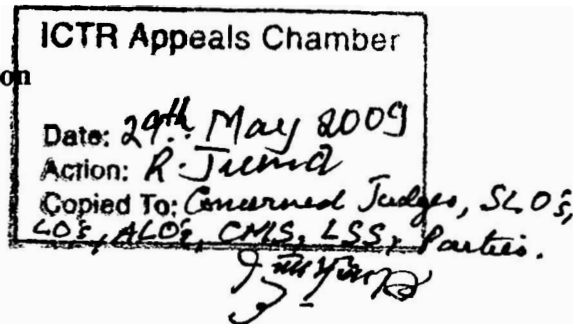 ICTR Appeals Chamber
on
Date: 29th May 2009
Action: R. Juma
Copied To: Concerned Judges, SLO's,
LO's, ALO's, CMS, LSS, Parties.